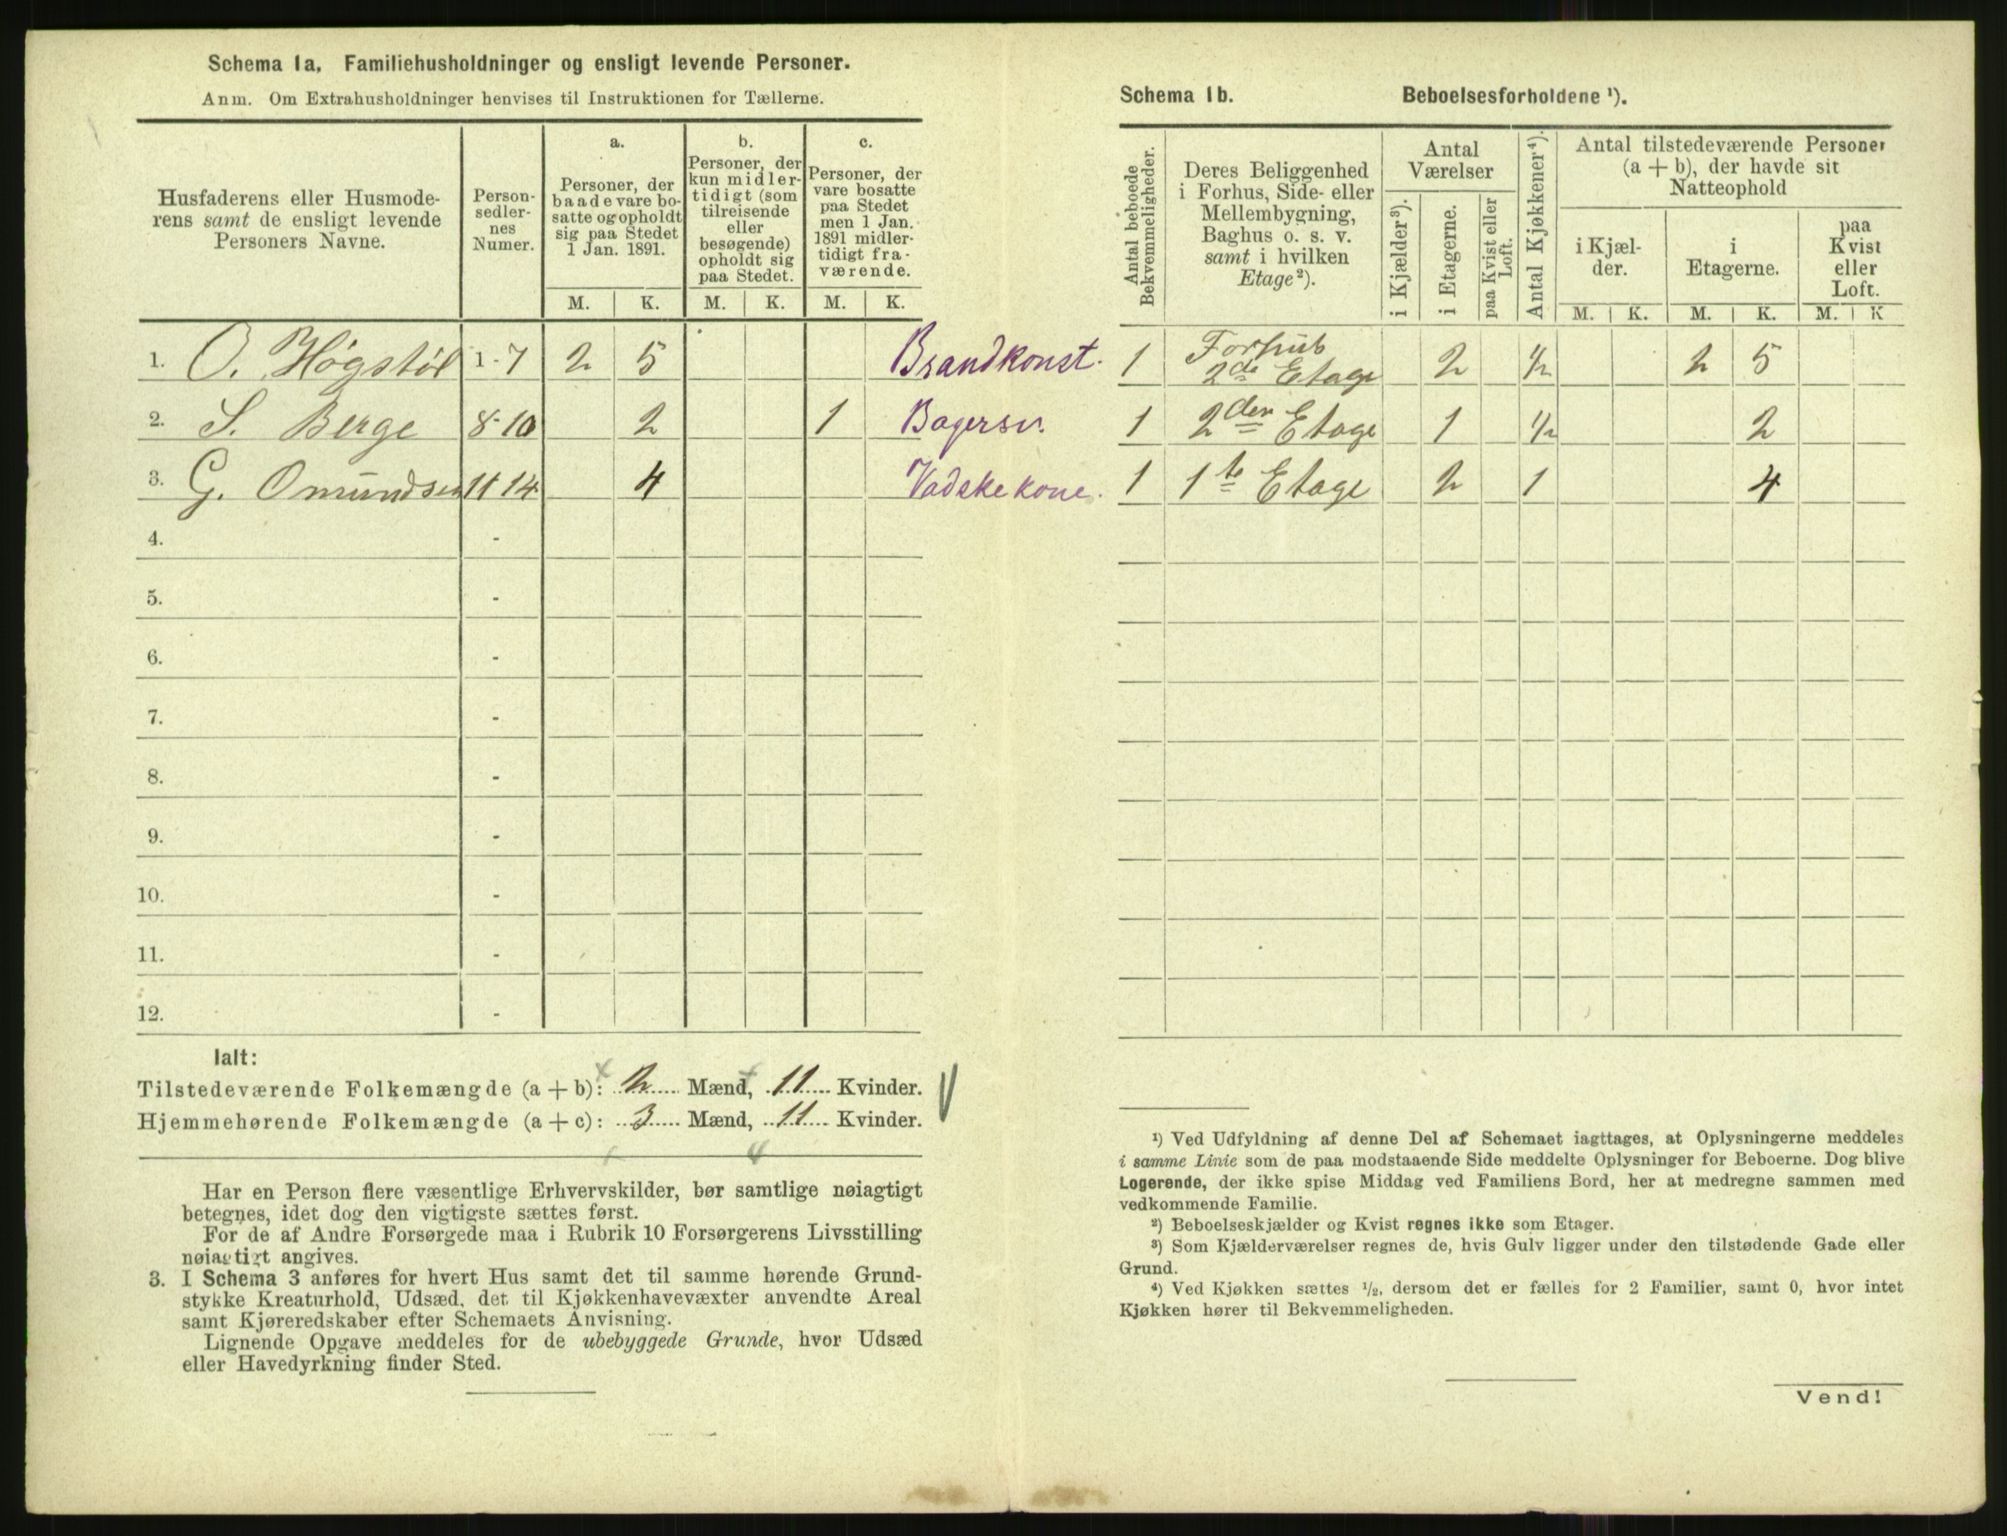 Schema 1a. Familiehusholdninger og ensligt levende Personer.
Anm. Om Extrahusholdninger henvises til Instruktionen for Tællerne.
Husfaderens eller Husmode-
rens samt de ensligt levende
Personers Navne.
Person-
sedler-
nes
Numer.
a.
Personer, der
baade vare bo-
satte og opholdt
sig paa Stedet
1 Jan. 1891.
b.
Personer, der
kun midler-
tidigt (som
tilreisende
eller
besøgende)
opholdt sig
paa Stedet.
c.
Personer, der
vare bosatte
paa Stedet
men 1 Jan.
1891 midler-
tidigt fra-
værende.
M. K. M. K. M. K.
1. O. Høgstøl 1-7 2 5 Brandkonst.
2. S. Berge 8-10 2 1 Bagersv.
3. G. Omundsen 11-14 4 Vadskekone.
4. -
5. -
6. -
7. -
8. -
9. -
10. -
11. -
12. -
Ialt:
Tilstedeværende Folkemængde (a + b): 2 Mænd, 11 Kvinder.
Hjemmehørende Folkemængde (a + c): 3 Mænd, 11 Kvinder.
Har en Person flere væsentlige Erhvervskilder, bør samtlige nøiagtigt
betegnes, idet dog den vigtigste sættes først.
For de af Andre Forsørgede maa i Rubrik 10 Forsørgerens Livsstilling
nøiagtigt angives.
3. I Schema 3 anføres for hvert Hus samt det til samme hørende Grund-
stykke Kreaturhold, Udsæd, det til Kjøkkenhavevæxter anvendte Areal
samt Kjøreredskaber efter Schemaets Anvisning.
Lignende Opgave meddeles for de ubebyggede Grunde, hvor Udsæd
eller Havedyrkning finder Sted.
Schema 1b. Beboelsesforholdene ¹).
Antal beboede
Bekvemmeligheder.
Deres Beliggenhed
i Forhus, Side- eller
Mellembygning,
Baghus o. s. v.
samt i hvilken
Etage²).
Antal
Værelser
i Kjælder³).
i Etagerne.
paa Kvist eller
Loft.
Antal Kjøkkener⁴).
Antal tilstedeværende Personer
(a + b), der havde sit
Natteophold
i Kjæl-
der.
i
Etagerne.
paa
Kvist
eller
Loft.
M. K. M. K. M. K
1 Forhus
2de Etage 2 ½ 2 5
1 2den Etage 1 ½ 2
1 1te Etage 2 1 4
¹) Ved Udfyldning af denne Del af Schemaet iagttages, at Oplysningerne meddeles
i samme Linie som de paa modstaaende Side meddelte Oplysninger for Beboerne. Dog blive
Logerende, der ikke spise Middag ved Familiens Bord, her at medregne sammen med
vedkommende Familie.
²) Beboelseskjælder og Kvist regnes ikke som Etager.
³) Som Kjælderværelser regnes de, hvis Gulv ligger under den tilstødende Gade eller
Grund.
⁴) Ved Kjøkken sættes ½, dersom det er fælles for 2 Familier, samt 0, hvor intet
Kjøkken hører til Bekvemmeligheden.
Vend!